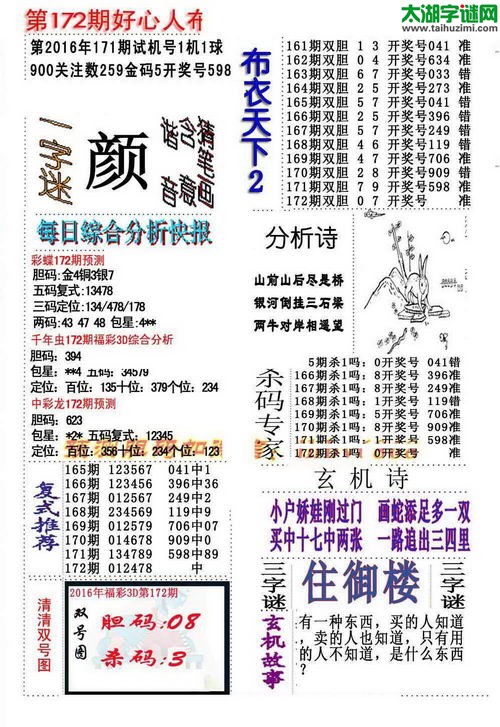 太湖字谜网
www.taihuzimi.com
第172期好心人布
第2016年171期试机号1机1球
900关注数259金码5开奖号598
一字迷
颜
猜笔画
含意
谐音
布衣天下2
161期双胆 1 3 开奖号041 准
162期双胆 0 4 开奖号634 准
163期双胆 6 7 开奖号033 错
164期双胆 2 5 开奖号273 准
165期双胆 5 7 开奖号041 错
166期双胆 2 5 开奖号396 错
167期双胆 5 7 开奖号249 错
168期双胆 4 6 开奖号119 错
169期双胆 4 7 开奖号706 准
170期双胆 2 8 开奖号909 错
171期双胆 7 9 开奖号598 准
172期双胆 0 7 开奖号 准
每日综合分析快报
彩蝶172期预测
胆码:金4铜3银7
五码复式:13478
三码定位:134/478/178
两码:43 47 48 包星:4**
千年虫172期福彩3D综合分析
胆码: 394
包星: **4 五码: 34579
定位: 百位: 135十位: 379个位: 234
中彩龙172期预测
胆码: 623
包星: *2* 五码: 12345
定位: 百位: 356十位: 234个位: 123
分析诗
山前山后尽是桥
银河倒挂三石梁
两牛对岸相遥望
杀码专家
5期杀1吗: 0开奖号 041错
166期杀1吗: 8开奖号 396准
167期杀1吗: 8开奖号 249准
168期杀1吗: 6开奖号 119准
169期杀1吗: 5开奖号 706准
170期杀1吗: 8开奖号 909准
171期杀1吗: 9开奖号 598错
172期杀1吗: 0开奖号 准
复式推荐
165期 123567 041中1
166期 123456 396中36
167期 012567 249中2
168期 234569 119中
169期 012579 706中07
170期 013467 909中0
171期 134789 598中89
172期 012478 中
玄机诗
小户娇娃刚过门 画蛇添足多一双
买中十七中两张 一路追出三四里
三字谜
住御楼
三字谜
清清双号图
2016年福彩3D第172期
双号图
胆码:08
杀码:3
玄机故事
有一种东西，买的人知道
，卖的人也知道，只有用
的人不知道，是什么东西
？